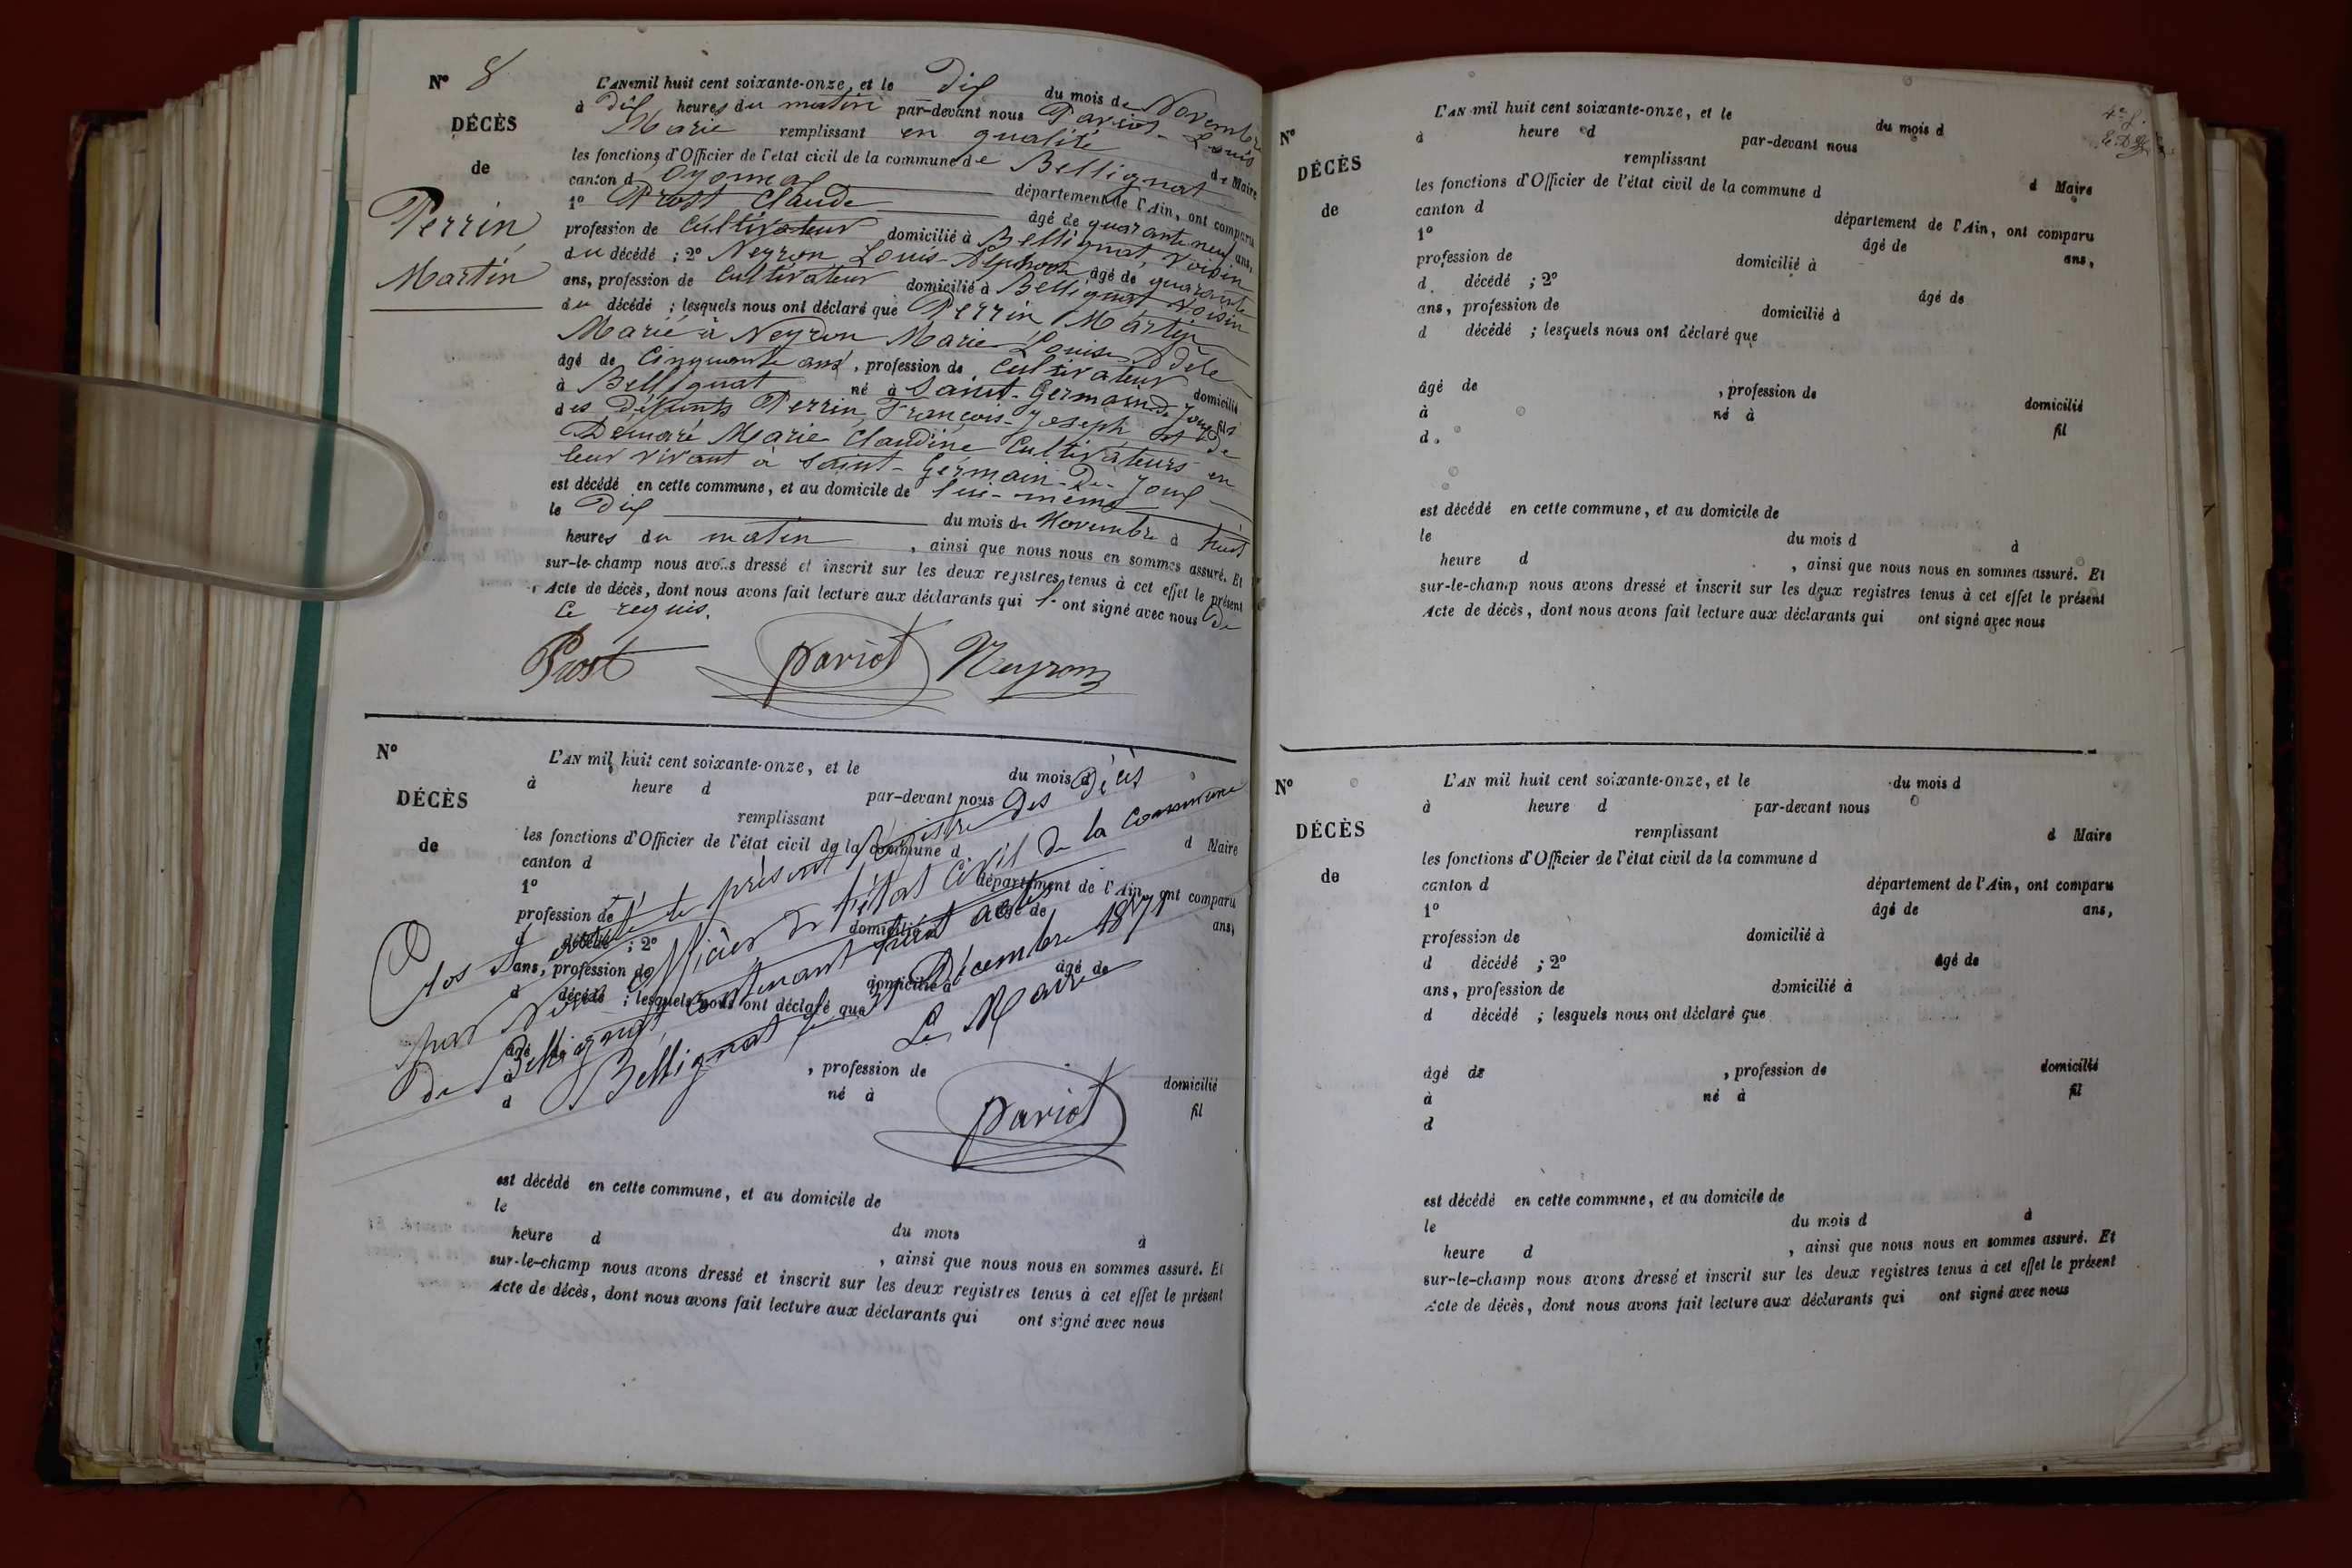 N° 8
DÉCÈS
de
Perrin
Martin
L'AN mil huit cent soixante-onze, et le Dix du mois de Novembre
à Dix heures du matin par-devant nous Pariot Louis
Marie remplissant en qualité de Maire
les fonctions d'Officier de l'état civil de la commune de Bellignat
canton d'Oyonnax département de l'Ain, ont comparu
1° Prost Claude âgé de quarante neuf ans,
profession de Cultivateur domicilié à Bellignat, voisin
du décédé ; 2° Neyron Louis-Alphonse âgé de quarante
ans, profession de Cultivateur domicilié à Bellignat voisin
du décédé ; lesquels nous ont déclaré que Perrin Martin
Marié à Neyron Marie Louise Adèle
âgé de Cinquante ans, profession de Cultivateur domicilié
à Bellignat né à Saint-Germain-de-Joux fils
des défunts Perrin François-Joseph et de
Marie Claudine Cultivateurs en
leur vivant à Saint-Germain-de-Joux
est décédé en cette commune, et au domicile de lui-même
le Dix du mois de Novembre à huit
heures du matin, ainsi que nous nous en sommes assuré. Et
sur-le-champ nous avons dressé et inscrit sur les deux registres tenus à cet effet le présent
Acte de décès, dont nous avons fait lecture aux déclarants qui l'ont signé avec nous de
ce requis.
Prost Pariot Neyron
N°
DÉCÈS
de
L'AN mil huit cent soixante-onze, et le du mois d
à heure d par-devant nous
remplissant d Maire
les fonctions d'Officier de l'état civil de la commune d
canton d département de l'Ain, ont comparu
1° âgé de ans,
profession de domicilié à
d décédé ; 2° âgé de
ans, profession de domicilié à
d décédé ; lesquels nous ont déclaré que
Clos et arrêté le présent Registre des Décès
par Nous Officier de l'état Civil de la Commune
de Bellignat, Contenant huit actes
Bellignat le 31 Décembre 1871
Le Maire
Pariot
âgé de , profession de domicilié
à né à fil
d
est décédé en cette commune, et au domicile de
le du mois à
heure d , ainsi que nous nous en sommes assuré. Et
sur-le-champ nous avons dressé et inscrit sur les deux registres tenus à cet effet le présent
Acte de décès, dont nous avons fait lecture aux déclarants qui ont signé avec nous
N°
DÉCÈS
de
L'AN mil huit cent soixante-onze, et le du mois d
à heure d par-devant nous
remplissant d Maire
les fonctions d'Officier de l'état civil de la commune d
canton d département de l'Ain, ont comparu
1° âgé de ans,
profession de domicilié à
d décédé ; 2° âgé de
ans, profession de domicilié à
d décédé ; lesquels nous ont déclaré que
âgé de , profession de domicilié
à né à fil
d
est décédé en cette commune, et au domicile de
le du mois d à
heure d , ainsi que nous nous en sommes assuré. Et
sur-le-champ nous avons dressé et inscrit sur les deux registres tenus à cet effet le présent
Acte de décès, dont nous avons fait lecture aux déclarants qui ont signé avec nous
N°
DÉCÈS
de
L'AN mil huit cent soixante-onze, et le du mois d
à heure d par-devant nous
remplissant d Maire
les fonctions d'Officier de l'état civil de la commune d
canton d département de l'Ain, ont comparu
1° âgé de ans,
profession de domicilié à
d décédé ; 2° âgé de
ans, profession de domicilié à
d décédé ; lesquels nous ont déclaré que
âgé de , profession de domicilié
à né à fil
d
est décédé en cette commune, et au domicile de
le du mois d à
heure d , ainsi que nous nous en sommes assuré. Et
sur-le-champ nous avons dressé et inscrit sur les deux registres tenus à cet effet le présent
Acte de décès, dont nous avons fait lecture aux déclarants qui ont signé avec nous